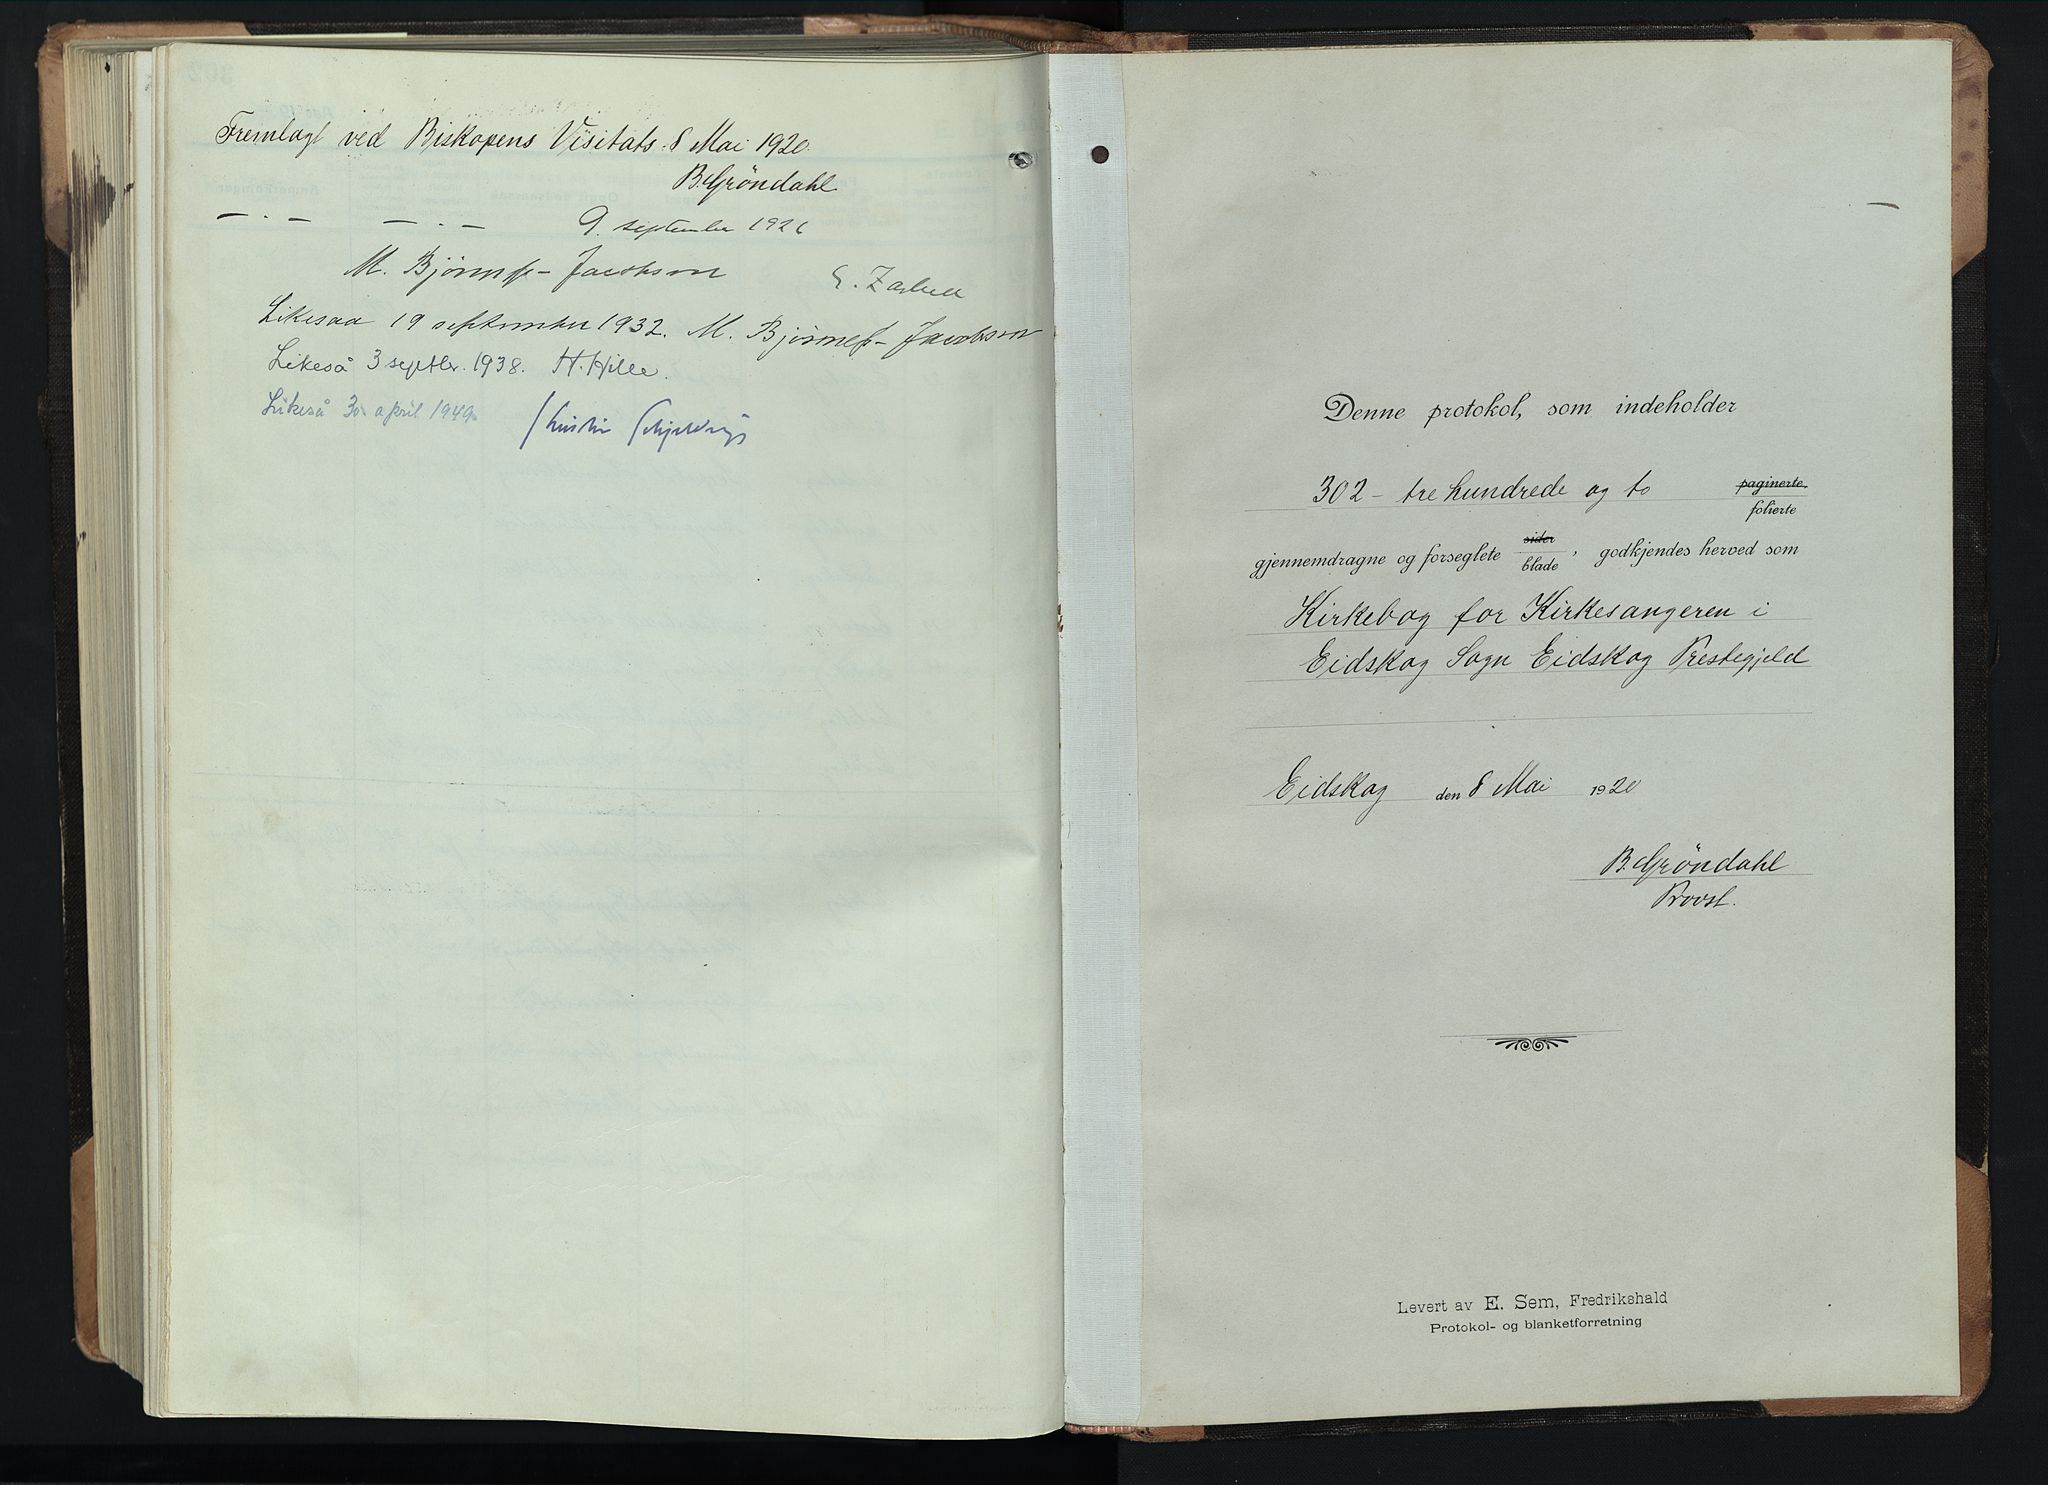 Fremlagt ved Biskopens Visitats 8 Mai 1920.
B. Gröndahl
— . — — . — 9. september 1926
M. Bjönness-Jacobson
Likesaa 19 september 1932. M. Bjönness-Jacobson
Likeså 3 septbr. 1938. H. Hille.
Likeså 30 april 1949.
Denne protokol, som indeholder
302 - tre hundrede og to paginerte
folierte
gjennemdragne og forseglete sider
blade, godkjendes herved som
Kirkebog for Kirkesangeren i
Eidskog Sogn Eidskog Prestegjeld
Eidskog den 8 Mai 1920
B. Gröndahl
Provst.
Levert av E. Sem, Fredrikshald
Protokol- og blanketforretning